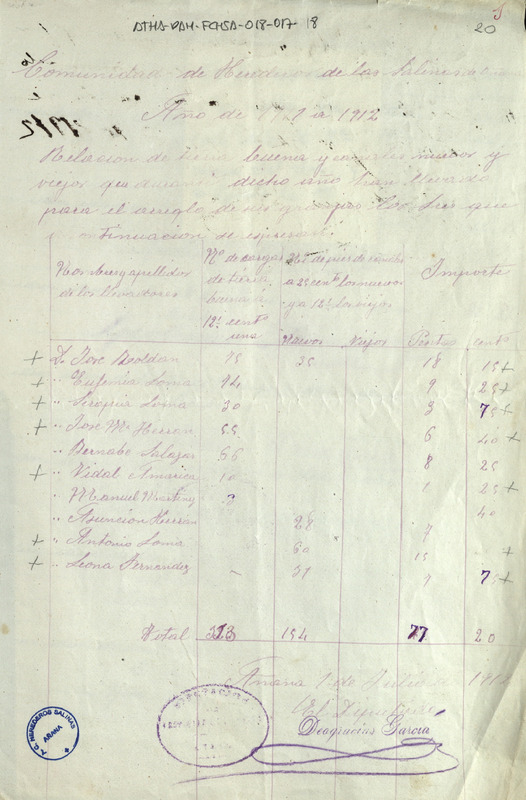 ATHA-DAH-FCHSA-018-017-18
20
Comunidad de Herederos de las Salinas de
Año de 1911 a 1912
1912
Relacion de tierra buena y canales nuevos y
viejos que durante dicho año han llevado
para el arreglo de sus granjas los Sres que
a continuacion se espresan
Nombres y apellidos de los llevadores
Nº de cargas de tierra buena a 12½ centº una
a 25 centº los nuevos y a 12½ los viejos
Nuevos Viejos
Importe
Pesetas centº
+ D. Jose Roldan 75 35 18 15+
+ " Eufemia Loma 74 9 25+
+ " Serapia Loma 30 3 75+
+ " Jose Mª Herran 55 6 40+
" Bernabe Salazar 66 8 25
+ " Vidal America 10 1 25+
" Manuel Martinez 3 40
" Asuncion Herran 28 7
+ " Antonio Loma 60 15 +
+ " Leona Fernandez - 31 7 75+
Total 313 154 77 20
Añana 1 de Julio de 1912
El Deputado
Deogracias García
A. C. HEREDEROS SALINAS
AÑANA